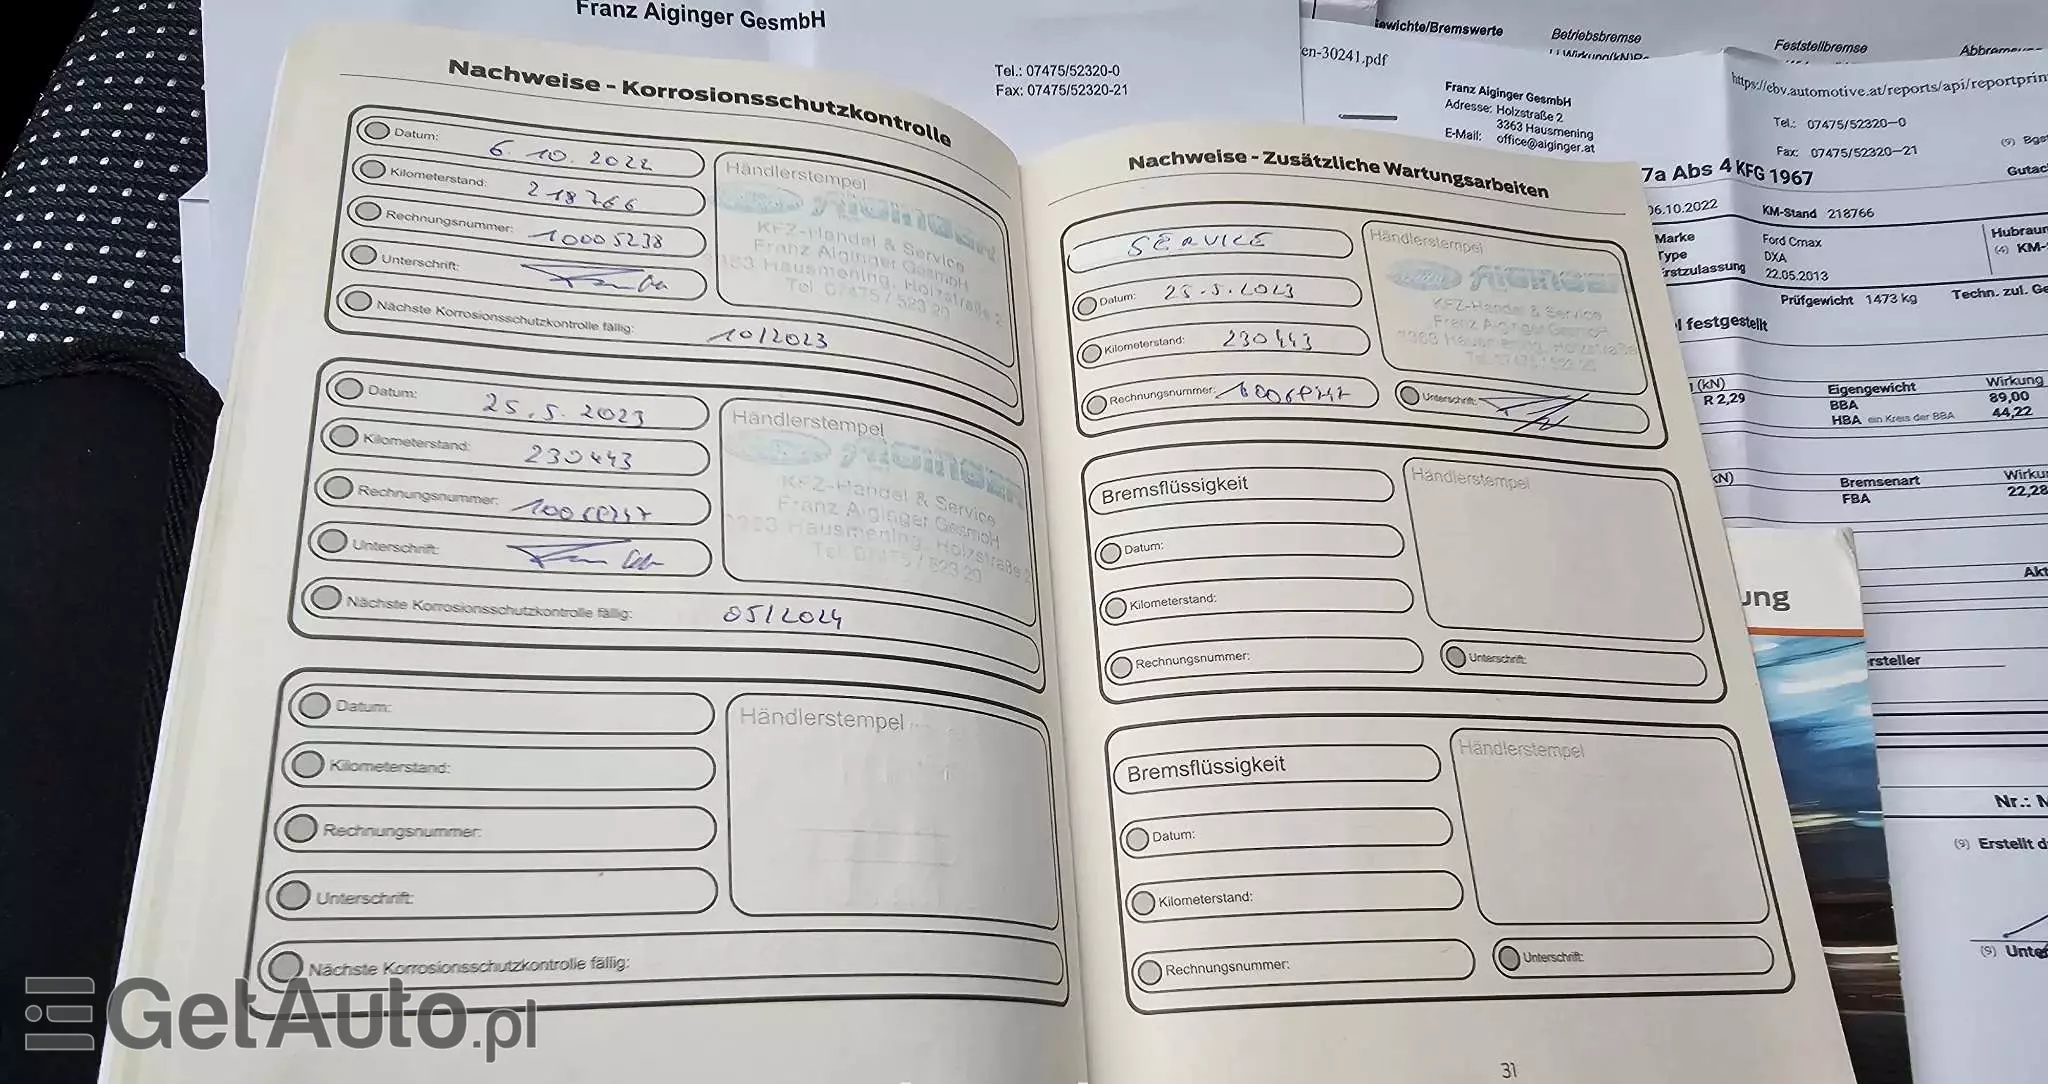 Franz Aiginger GesmbH
Tel.: 07475/52320-0
Fax: 07475/52320-21
Nachweise - Korrosionsschutzkontrolle
Datum: 6.10.2022
Kilometerstand: 218766
Rechnungsnummer: 10005238
Unterschrift:
Nächste Korrosionsschutzkontrolle fällig: 10/2023
Händlerstempel
AIGINGER
KFZ-Handel & Service
Franz Aiginger GesmbH
3363 Hausmening, Holzstraße 2
Tel. 07475 / 523 20
Datum: 25.5.2023
Kilometerstand: 230443
Rechnungsnummer:
Unterschrift:
Nächste Korrosionsschutzkontrolle fällig: 05/2024
Händlerstempel
AIGINGER
KFZ-Handel & Service
Franz Aiginger GesmbH
3363 Hausmening, Holzstraße 2
Tel. 07475 / 523 20
Datum:
Kilometerstand:
Rechnungsnummer:
Unterschrift:
Nächste Korrosionsschutzkontrolle fällig:
Händlerstempel
Nachweise - Zusätzliche Wartungsarbeiten
SERVICE
Datum: 25.5.2023
Kilometerstand: 230443
Rechnungsnummer:
Unterschrift:
Händlerstempel
AIGINGER
KFZ-Handel & Service
Franz Aiginger GesmbH
3363 Hausmening, Holzstraße
Tel. 07475 / 523 20
Bremsflüssigkeit
Datum:
Kilometerstand:
Rechnungsnummer:
Unterschrift:
Händlerstempel
Bremsflüssigkeit
Datum:
Kilometerstand:
Rechnungsnummer:
Unterschrift:
Händlerstempel
31
ewichte/Bremswerte
Betriebsbremse
Feststellbremse
en-30241.pdf
https://ebv.automotive.at/reports/api/reportprin
Franz Aiginger GesmbH
Adresse: Holzstraße 2
3363 Hausmening
E-Mail: office@aiginger.at
Tel.: 07475/52320-0
Fax: 07475/52320-21
(9) Bgst
7a Abs 4 KFG 1967
Gutach
06.10.2022
KM-Stand 218766
Marke Ford Cmax
Type DXA
Erstzulassung 22.05.2013
Hubraum
(4) KM-
Prüfgewicht 1473 kg
Techn. zul. Ge
l festgestellt
(kN)
R 2,29
Eigengewicht Wirkung
BBA 89,00
HBA ein Kreis der BBA 44,22
kN)
Bremsenart Wirku
FBA 22,28
Akt
ung
rsteller
Nr.: M
(9) Erstellt d
(9) Unte
GetAuto.pl